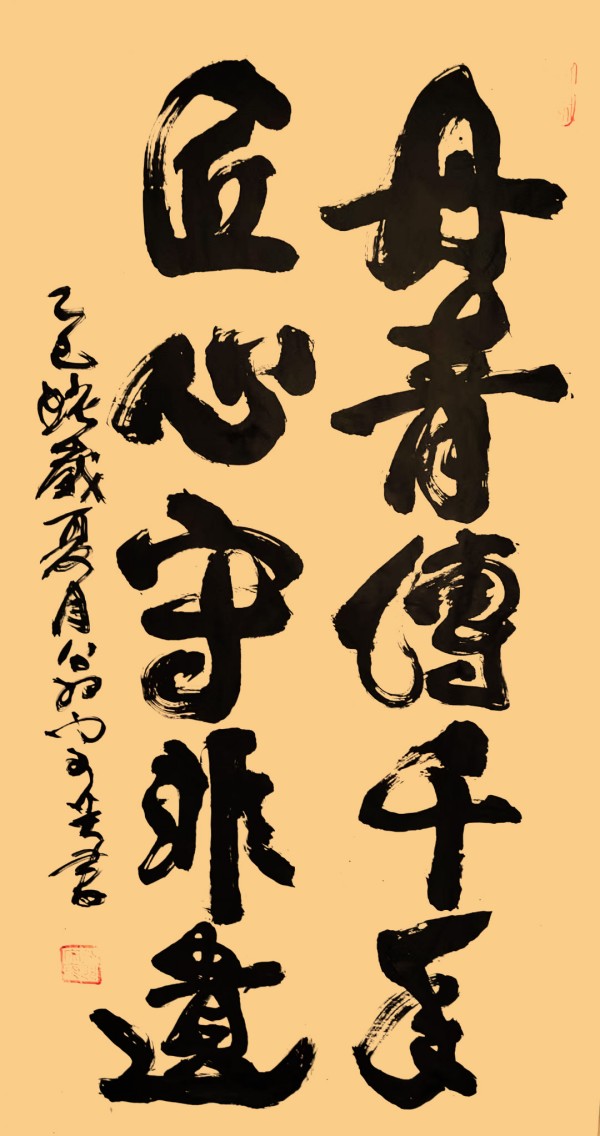 丹青傳千年
匠心守非遺
乙巳蛇歲夏月翁